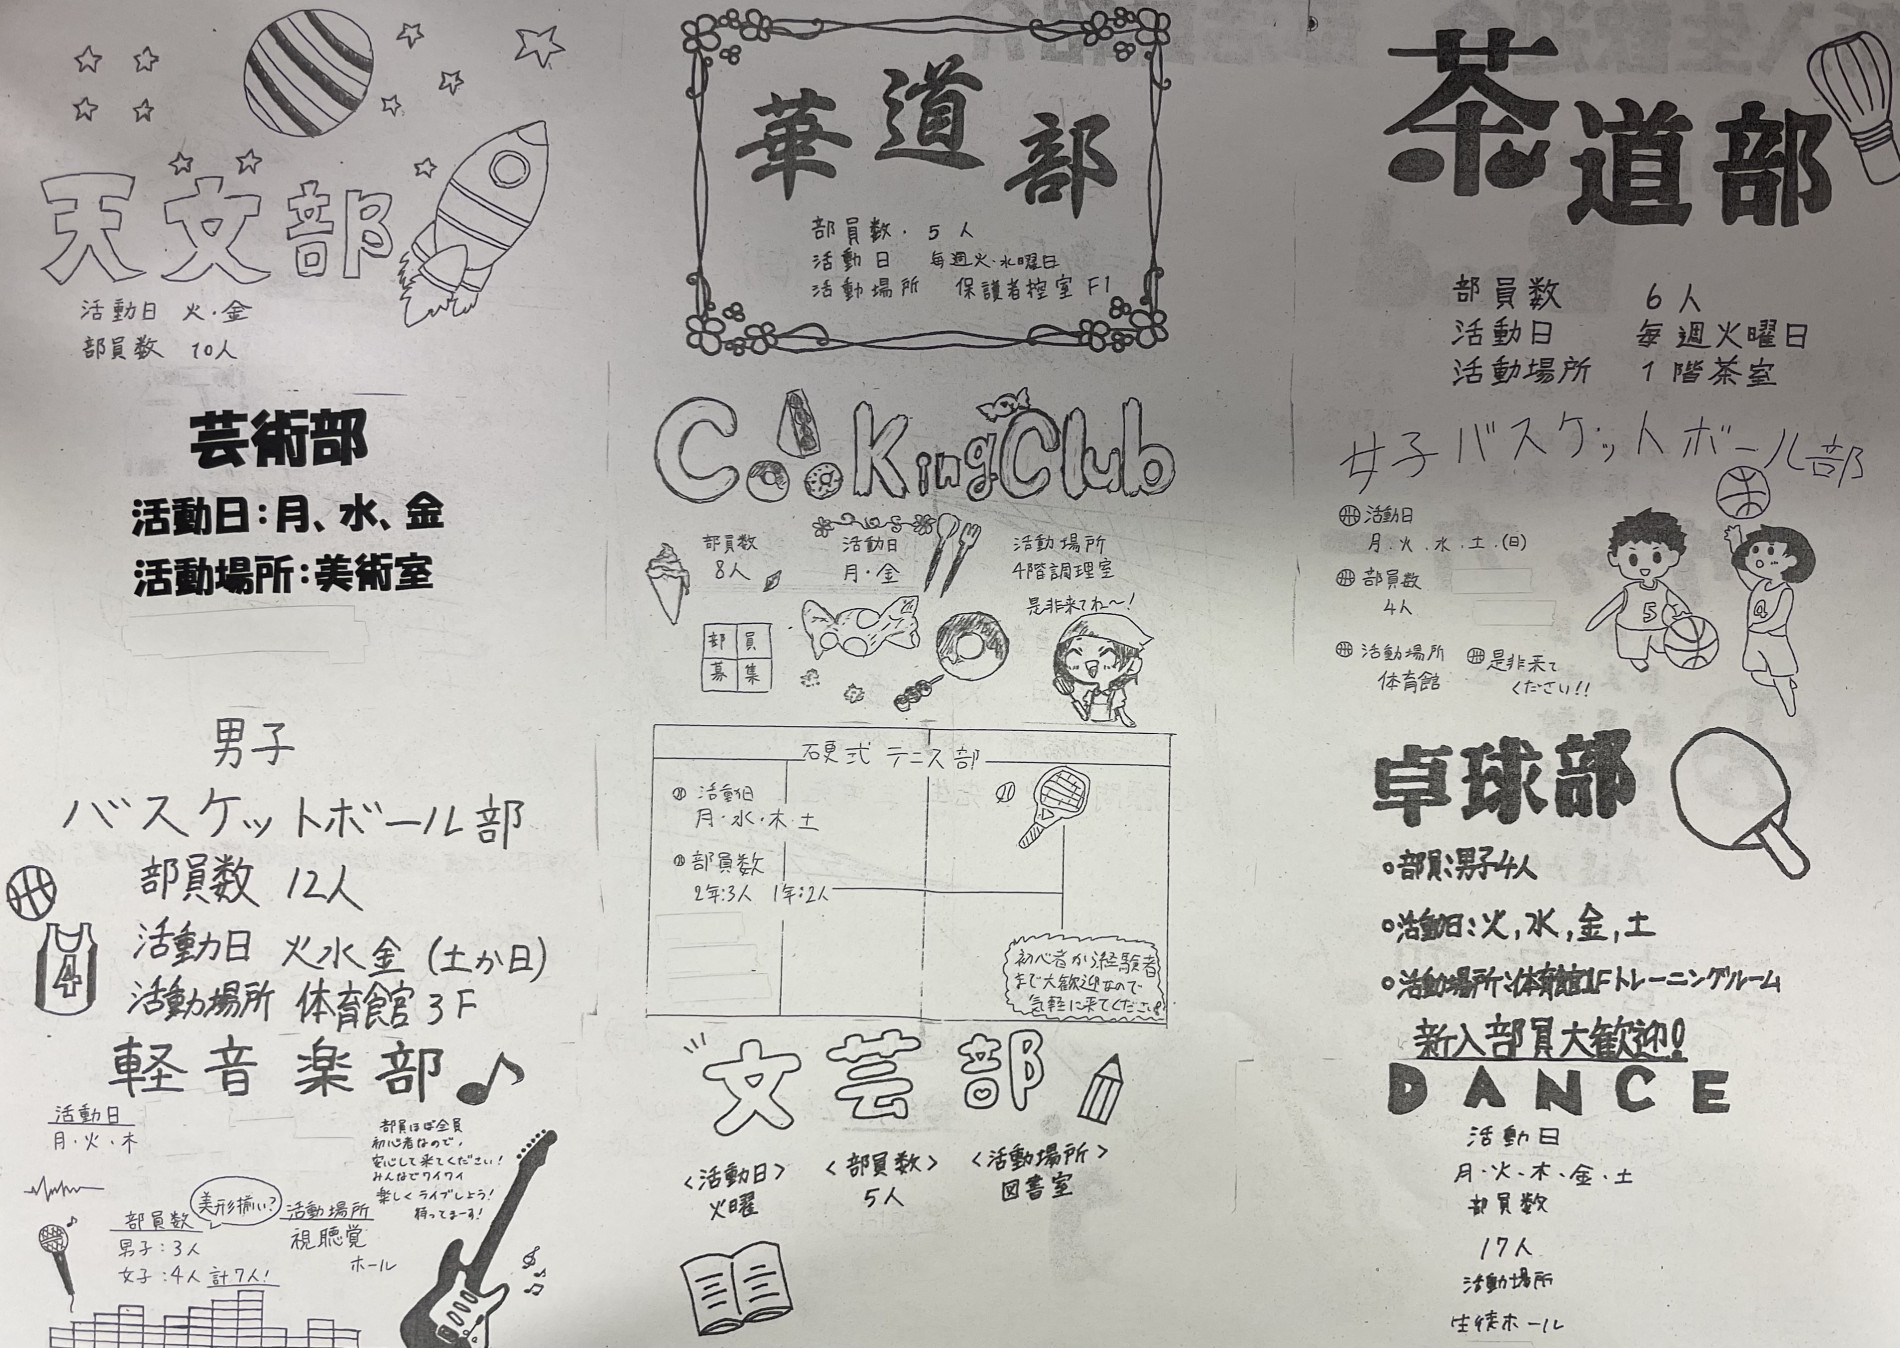 天文部
活動日 火・金
部員数 10人
芸術部
活動日:月、水、金
活動場所:美術室
男子
バスケットボール部
部員数 12人
活動日 火水金(土か日)
活動場所 体育館3F
4
軽音楽部
活動日
月・火・木
部員ほぼ全員
初心者なので、
安心して来てください!
みんなでワイワイ
楽しくライブしよう!
待ってまーす!
美形揃い?
部員数
男子:3人
女子:4人 計7人!
活動場所
視聴覚
ホール
華道部
部員数・5人
活動日 毎週火・水曜日
活動場所 保護者控室 F1
CooKingClub
部員数
8人
活動日
月・金
活動場所
4階調理室
是非来てね〜!
部員
募集
硬式テニス部
活動日
月・水・木・土
部員数
2年:3人 1年:2人
初心者から経験者
まで大歓迎なので
気軽に来てください!!
文芸部
<活動日>
火曜
<部員数>
5人
<活動場所>
図書室
茶道部
部員数 6人
活動日 毎週火曜日
活動場所 1階茶室
女子バスケットボール部
活動日
月.火.水.土.(日)
部員数
4人
活動場所
体育館
是非来て
ください!!
5
卓球部
部員:男子4人
活動日:火,水,金,土
活動場所:体育館1Fトレーニングルーム
新入部員大歓迎!
DANCE
活動日
月・火・木・金・土
部員数
17人
活動場所
生徒ホール